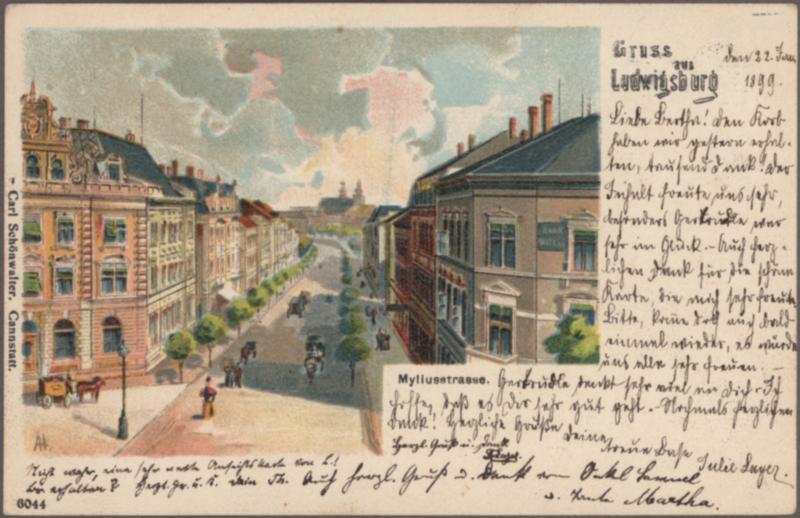 Gruss
aus
Ludwigsburg
den 22. Jan
1899.
Liebe Bertha! Den Korb
haben wir gestern erhal-
ten, tausend Dank! Der
Inhalt freute uns sehr,
besonders Gertrudle war
sehr im Glück. – Auch herz-
lichen Dank für die schöne
Karte, die mich sehr freute
Bitte, komme doch auch bald
einmal wieder, es würde
uns alle sehr freuen. –
Myliusstrasse.
Gertrudle denkt sehr viel an Dich. – Ich
hoffe, daß es Dir sehr gut geht. – Nochmals herzlichen
Dank! Herzliche Grüße
Deine
treue Base
Herzl. Gruß u. Dank
Julie
Nicht wahr, eine sehr nette Ansichtskarte von L.!
erhalten? Herzl. Gr. u. K. Dein
Auch herzl. Gruß u. Dank von Onkel Samuel
u. Tante Martha.
Carl Schönwalter. Cannstatt.
AH
6044